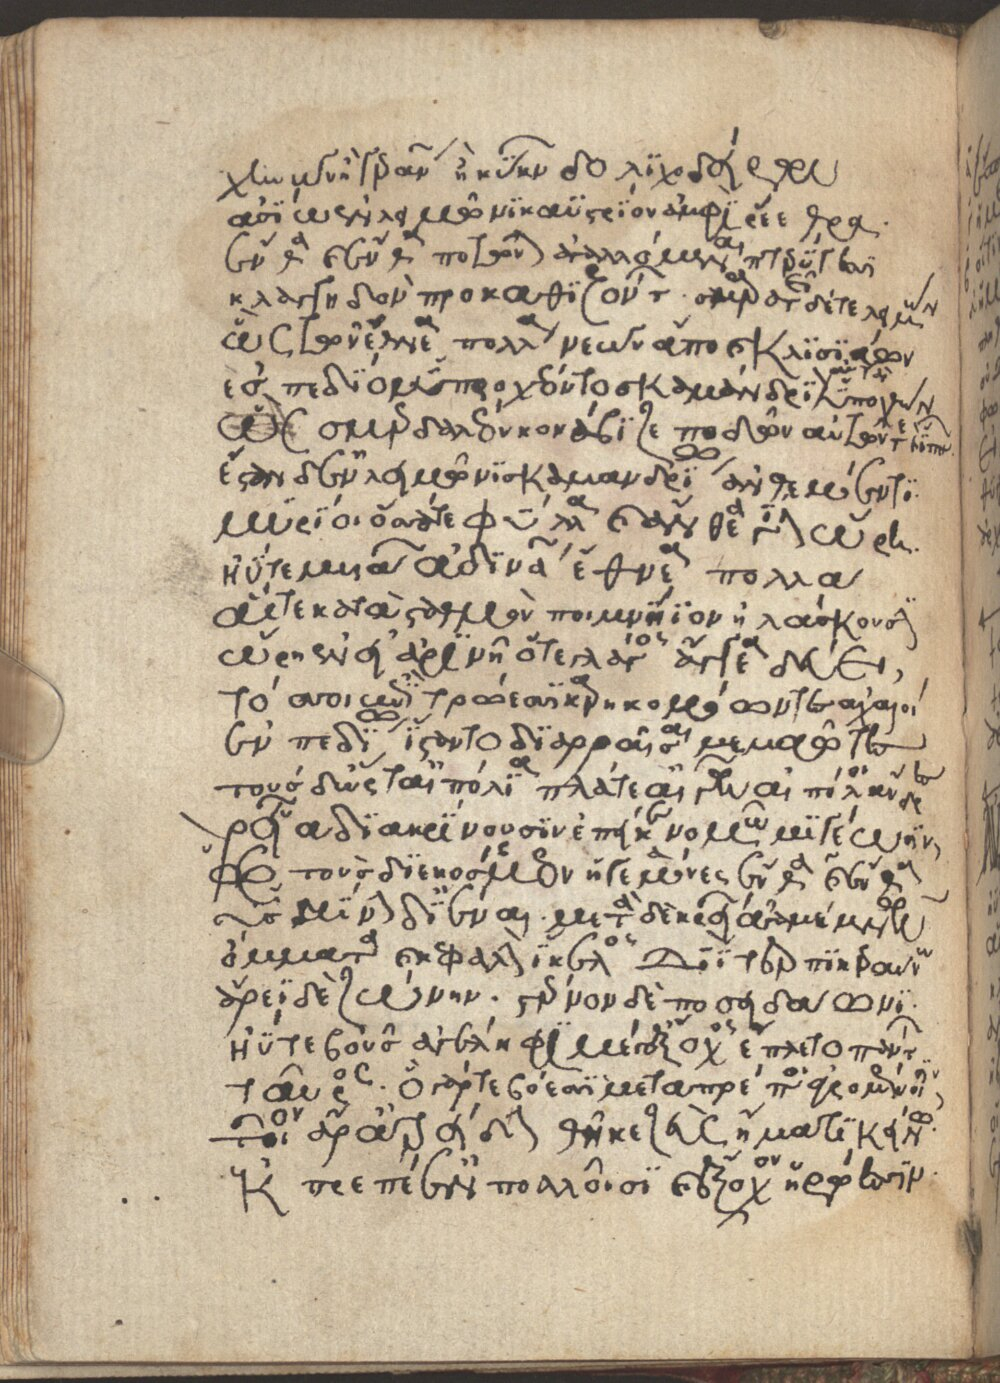 χηνῶν ἢ γεράνων ἢ κύκνων δουλιχοδείρων
ἀσίω ἐν λειμῶνι καϋστρίου ἀμφὶ ῥέεθρα.
ἔνθα καὶ ἔνθα ποτῶνται ἀγαλλόμεναι πτερύγεσσι
κλαγγηδὸν προκαθιζόντων. σμαραγεῖ δέ τε λειμών
ὣς τῶν ἔθνεα πολλὰ νεῶν ἄπο καὶ κλισιάων
ἐς πεδίον προχέοντο σκαμάνδριον αὐτὰρ ὑπὸ χθὼν
σμερδαλέον κονάβιζε ποδῶν αὐτῶν τε καὶ ἵππων.
ἔσταν δ' ἐν λειμῶνι σκαμανδρίω ἀνθεμόεντι
μυρίοι ὅσσά τε φύλλα καὶ ἄνθεα γίνεται ὥρη.
ἠΰτε μυιάων ἁδινάων ἔθνεα πολλα
αἵτε κατὰ σταθμὸν ποιμνήϊον ἠλάσκουσιν
ὥρη ἐν εἰαρινῆ ὅτε τε γλάγος ἄγγεα δεύει,
τόσσοι ἐπὶ τρώεσσι καρηκομόωντες ἀχαιοὶ
ἐν πεδίω ἵσταντο διαρραῖσαι μεμαῶτες
τοὺς δ' ὥστ' αἰπόλια πλατέ' αἰγῶν αἰπόλοι ἄνδρες
ῥεῖα διακρίνουσιν ἐπεί κε νομῶ μιγέωσιν,
ὣς τοὺς διεκόσμεον ἡγεμόνες ἔνθα καὶ ἔνθα
ὑσμίνην δ' ἰέναι. μετὰ δὲ κρείων ἀγαμέμνων
ὄμματα καὶ κεφαλὴν ἴκελος Διῒ τερπικεραύνω
ἄρεϊ δὲ ζώνην. στέρνον δὲ ποσειδάωνι.
ἠΰτε βοῦς ἀγέληφι μέγ' ἔξοχος ἔπλετο πάντων
ταῦρος. ὁ γάρ τε βόεσσι μεταπρέπει ἀγρομένησι,
τοῖον ἄρ' ἀτρείδην θῆκε ζεὺς ἤματι κείνω.
ἐκπρεπέ' ἐν πολλοῖσι καὶ ἔξοχον ἡρώεσσιν.